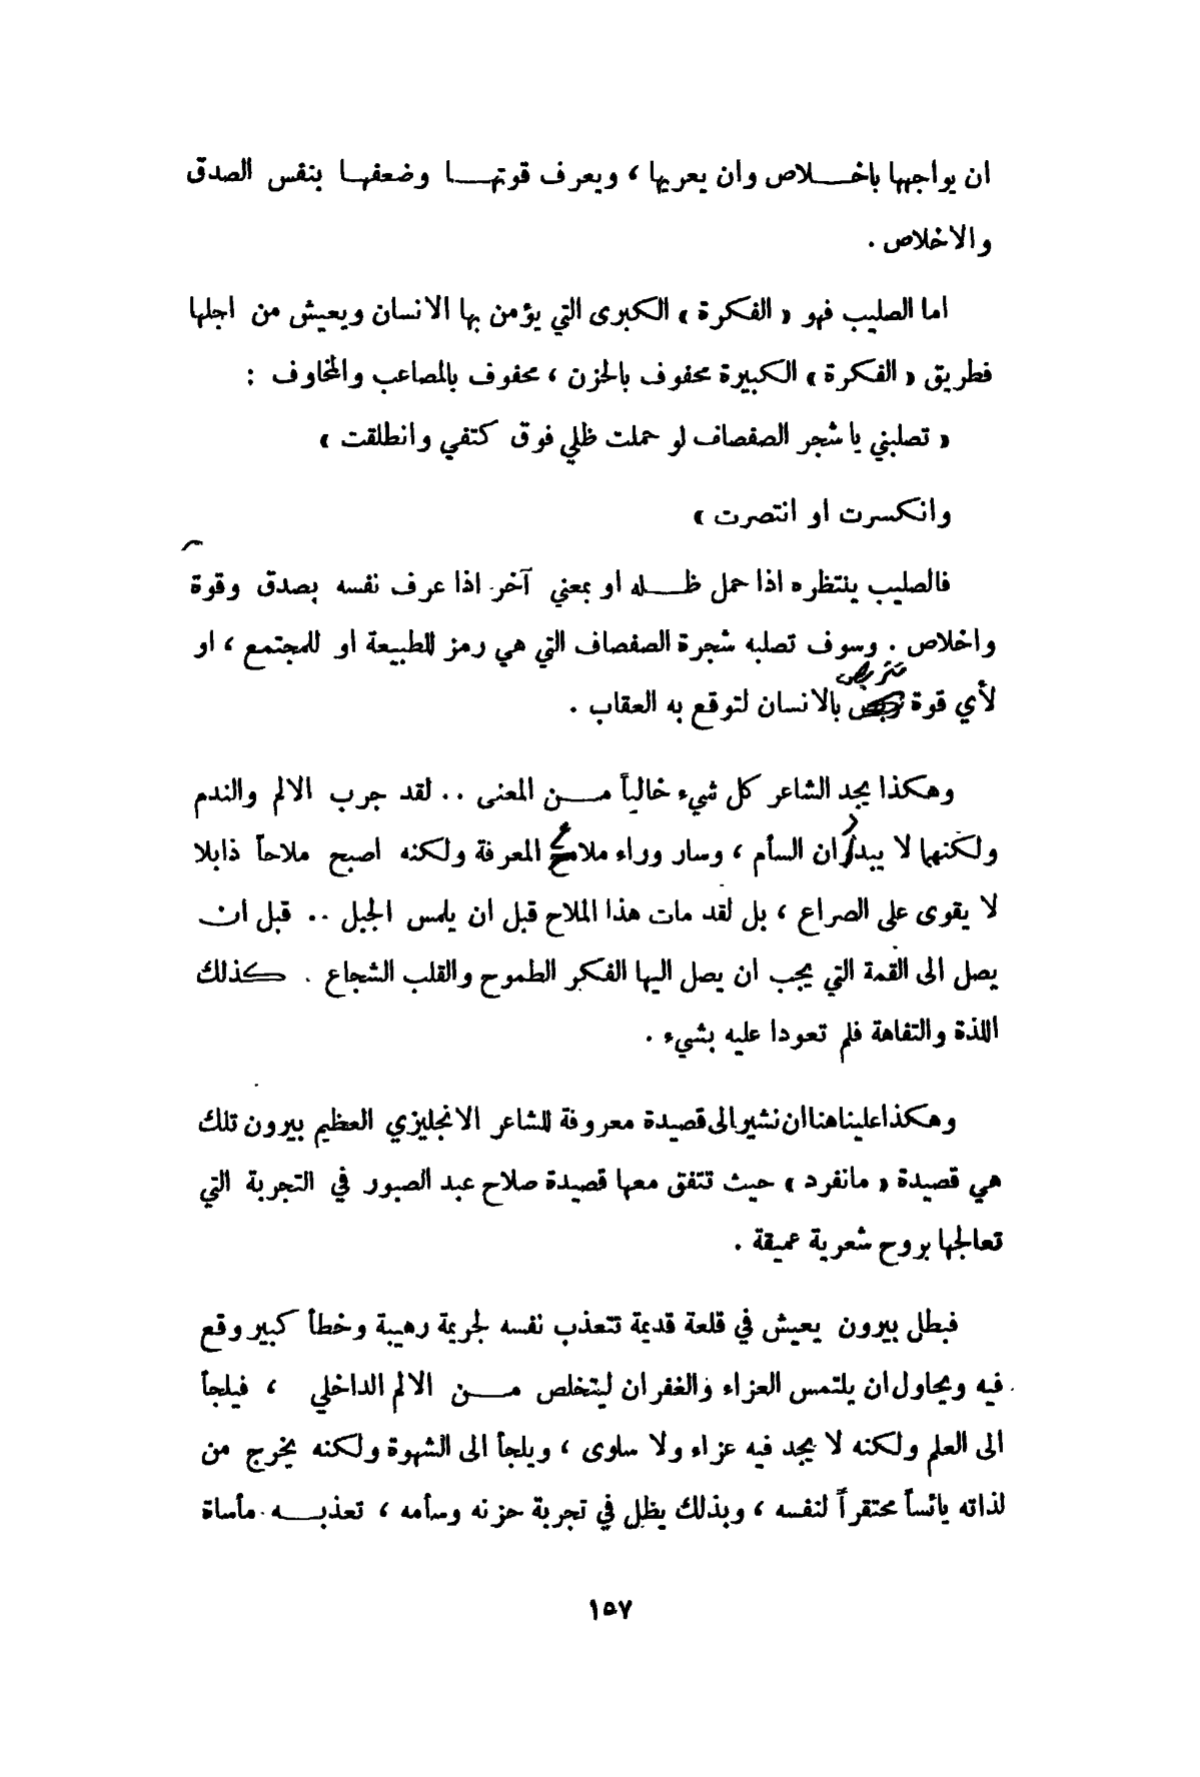 ان يواجهها باخلاص وان يعريها ، ويعرف قوتها وضعفها بنفس الصدق
والاخلاص .
اما الصليب فهو « الفكرة » الكبرى التي يؤمن بها الانسان ويعيش من اجلها
فطريق « الفكرة » الكبيرة محفوف بالحزن ، محفوف بالمصاعب والمخاوف :
« تصلبني يا شجر الصفصاف لو حملت ظلي فوق كتفي وانطلقت »
وانكسرت او انتصرت »
فالصليب ينتظره اذا حمل ظله او بمعني آخر اذا عرف نفسه بصدق وقوة
واخلاص . وسوف تصلبه شجرة الصفصاف التي هي رمز للطبيعة او للمجتمع ، او
لأي قوة تتربص بالانسان لتوقع به العقاب .
وهكذا يجد الشاعر كل شيء خالياً من المعنى .. لقد جرب الالم والندم
ولكنهما لا يبددان السأم ، وسار وراء ملامح المعرفة ولكنه اصبح ملاحاً ذابلا
لا يقوى على الصراع ، بل لقد مات هذا الملاح قبل ان يلمس الجبل .. قبل ان
يصل الى القمة التي يجب ان يصل اليها الفكر الطموح والقلب الشجاع . كذلك
اللذة والتفاهة فلم تعودا عليه بشيء .
وهكذا علينا هنا ان نشير الى قصيدة معروفة للشاعر الانجليزي العظيم بيرون تلك
هي قصيدة « مانفرد » حيث تتفق معها قصيدة صلاح عبد الصبور في التجربة التي
تعالجها بروح شعرية عميقة .
فبطل بيرون يعيش في قلعة قديمة تتعذب نفسه لجريمة رهيبة وخطأ كبير وقع
فيه ويحاول ان يلتمس العزاء والغفران ليتخلص من الالم الداخلي ، فيلجأ
الى العلم ولكنه لا يجد فيه عزاء ولا سلوى ، ويلجأ الى الشهوة ولكنه يخرج من
لذاته يائساً محتقراً لنفسه ، وبذلك يظل في تجربة حزنه وسأمه ، تعذبه مأساة
١٥٧